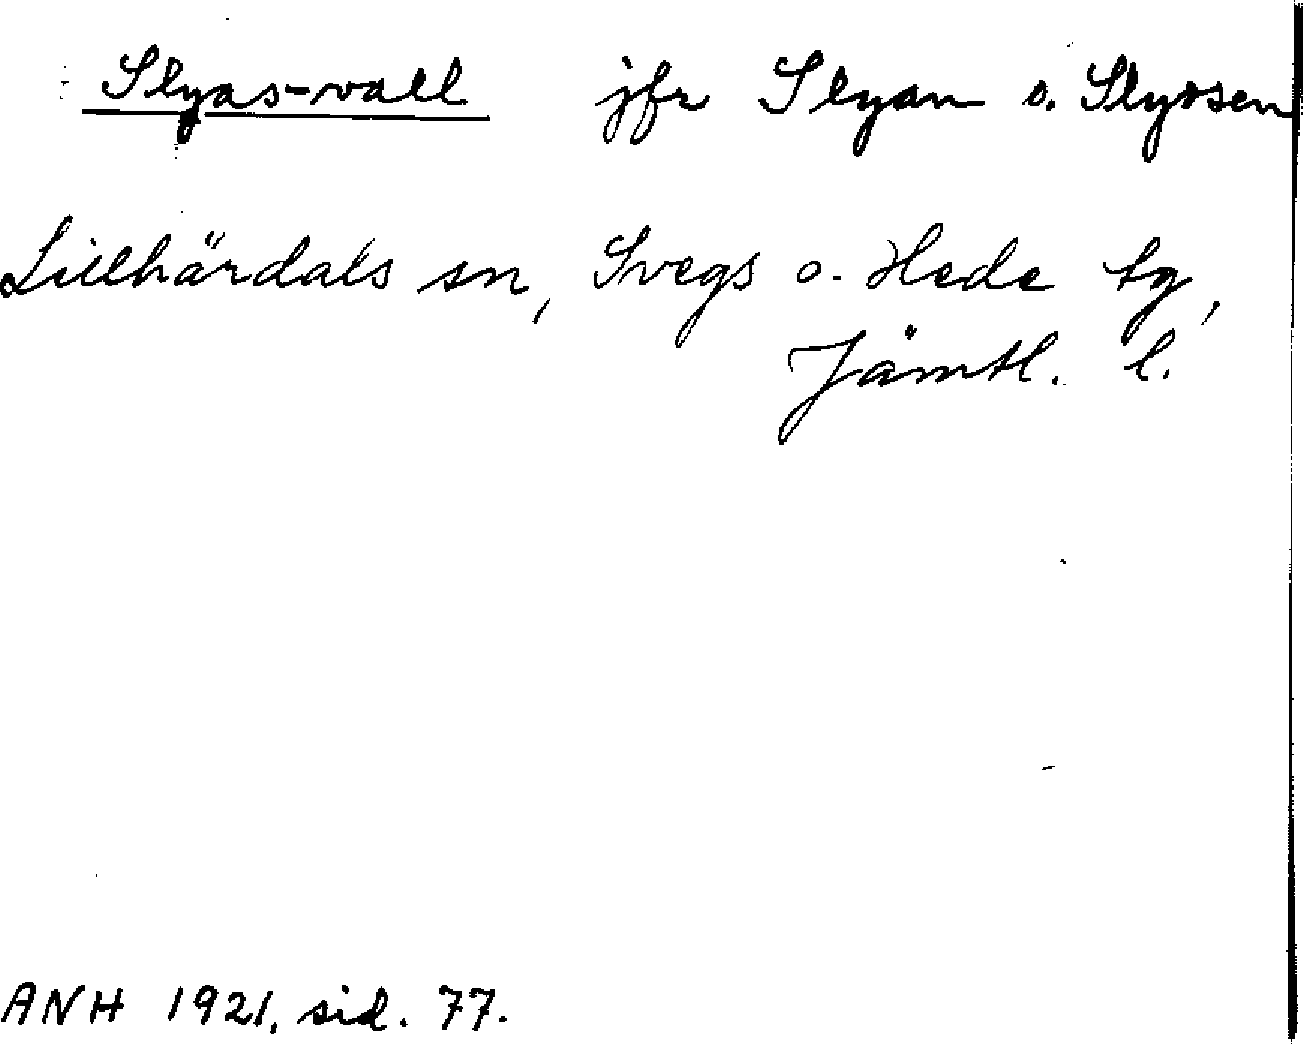 Slyas-vall jfr Slyan o. Slyosen
Lillhärdals sn, Svegs o. Hede tg,
Jämtl. l.
ANH 1921, sid. 77.